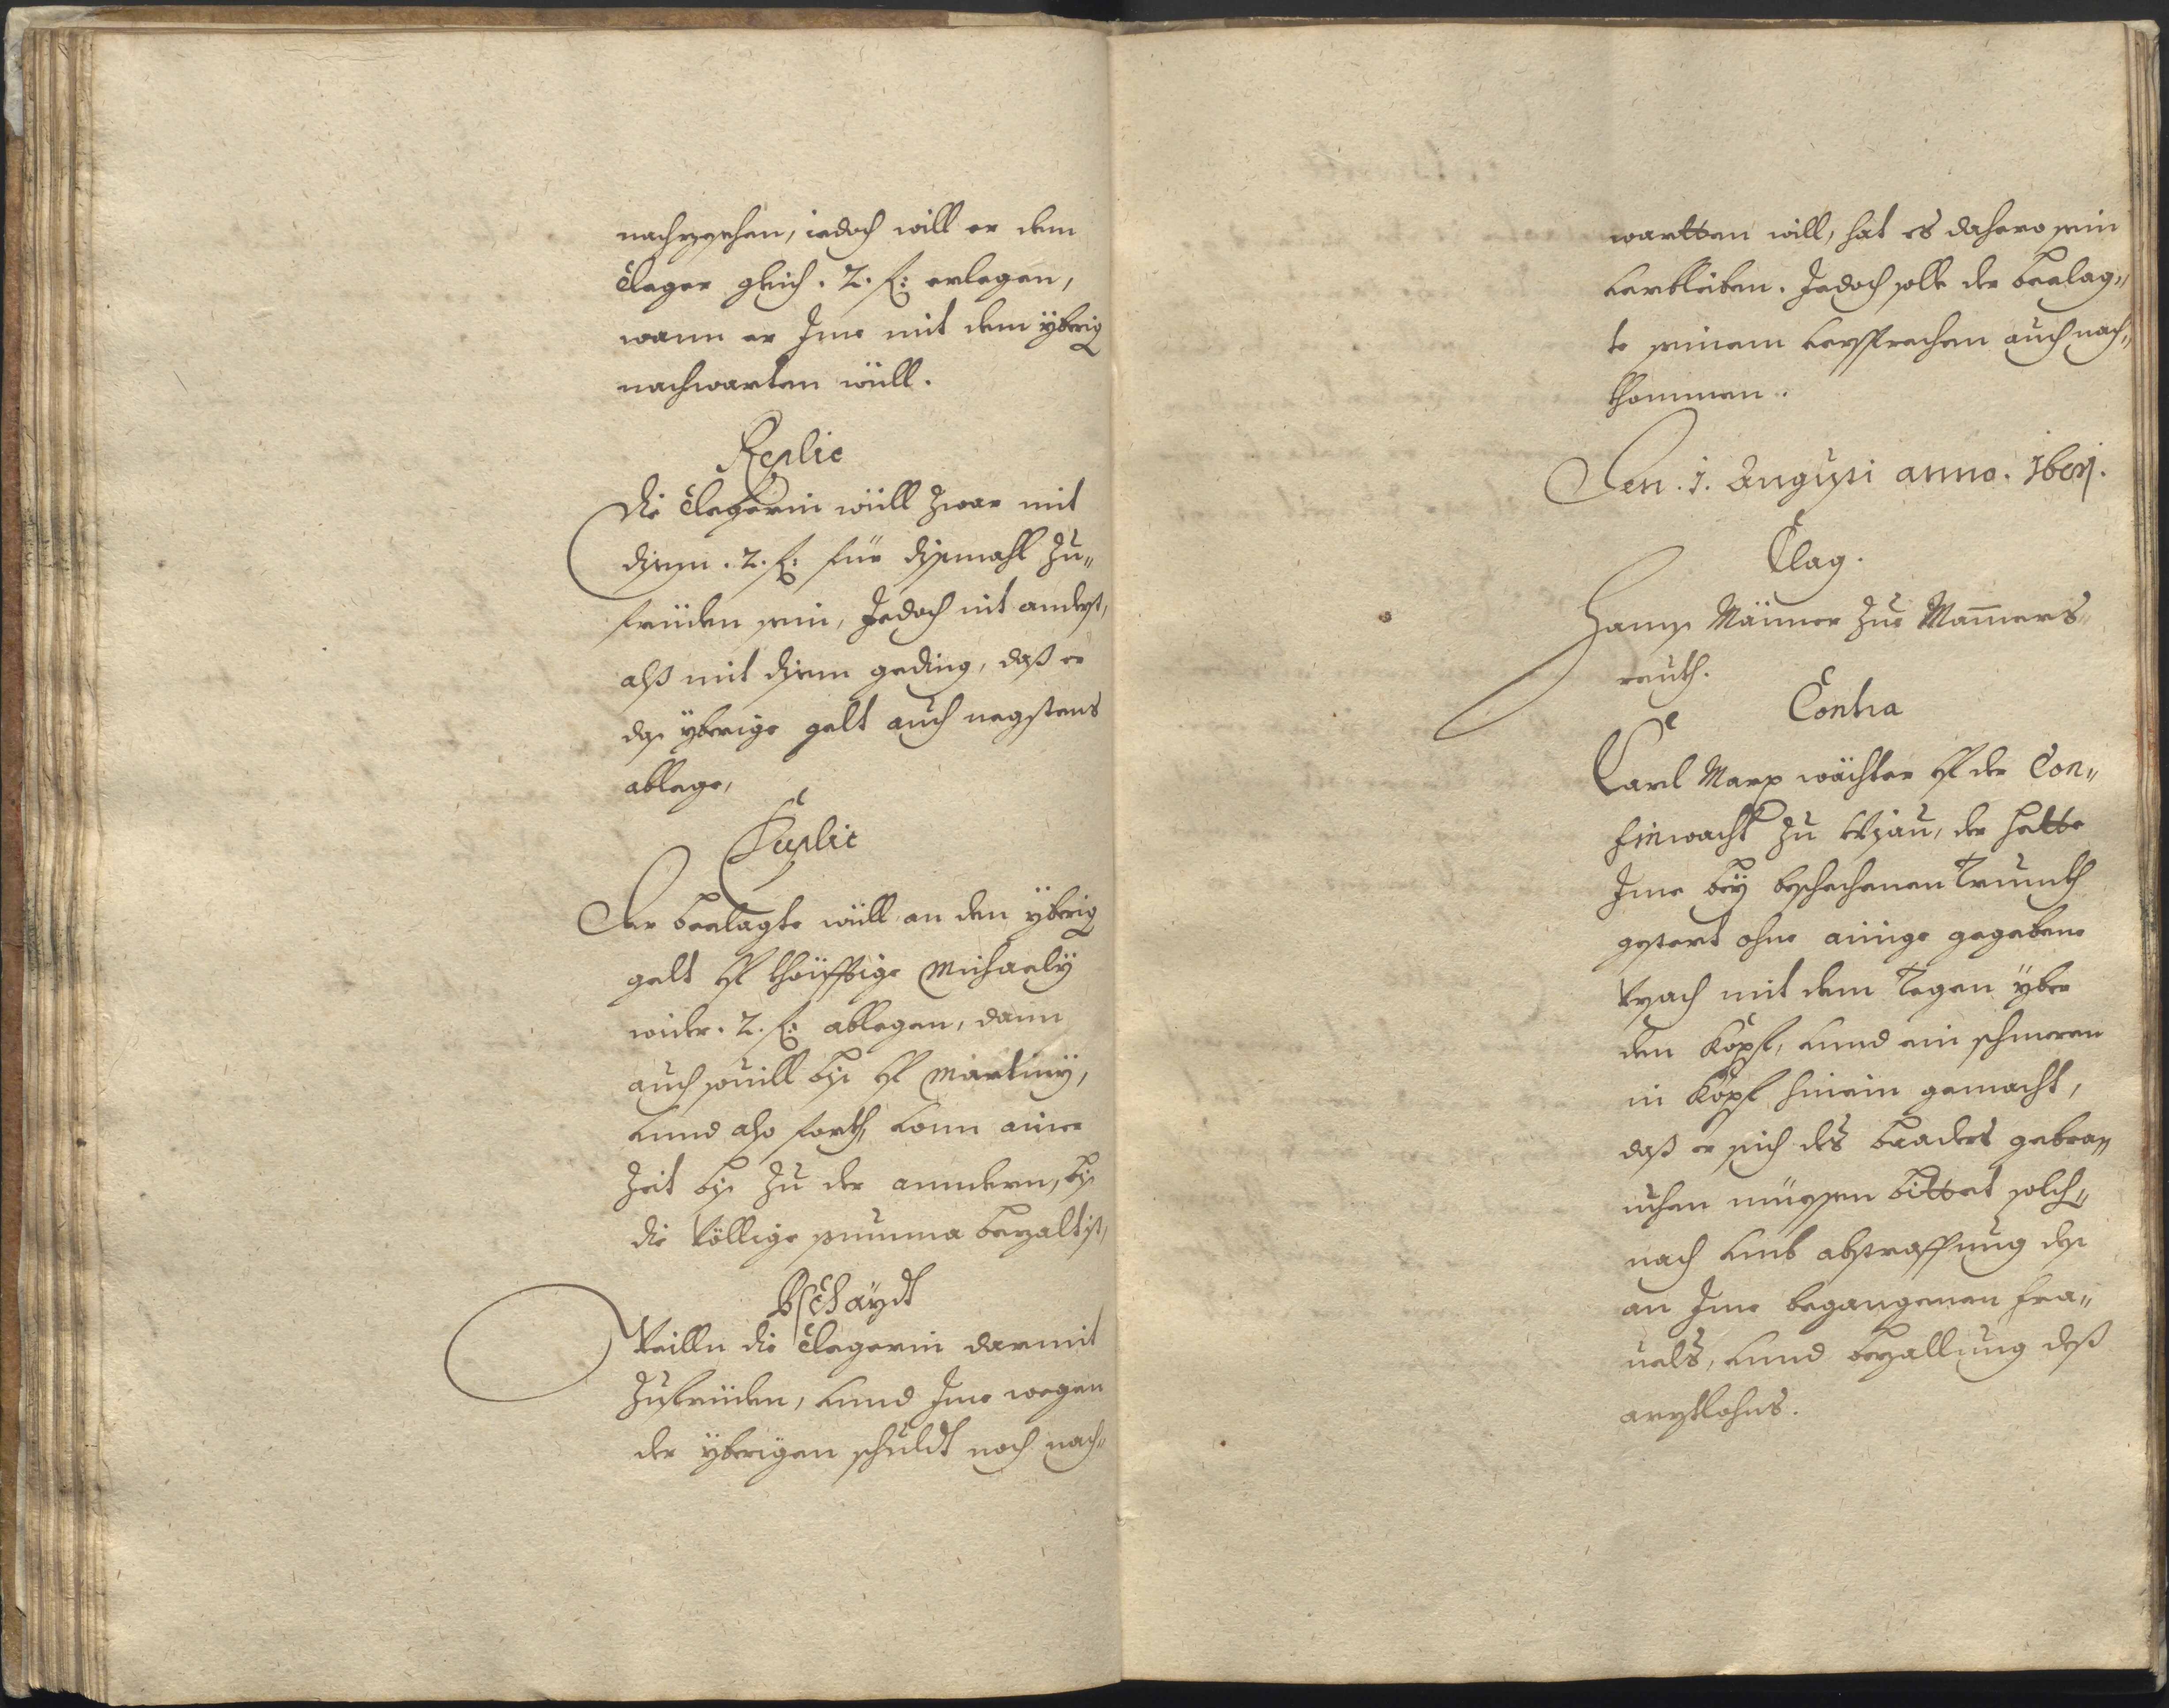 nachzesehen, iedoch will er dem
Clager gleich . 2 . f: erlegen,
wann er Ime mit dem yberig
nachwarten wüll.
Replic
Die Clegerin wüll zwar mit
disen . 2 . f: für dißmahl zu„
friden sein, Jedoch nit anderst,
alß mit disem geding, daß er
das yberige gelt auch negstens
ablege,
Duplic
Der beclagte wüll an den yberig
gelt vf khönfftige Michaely
wider . 2 . f: ablegen, dann
auch souill biß vf Martiny,
vnnd also forth, vonn ainer
Zeit biß zu der anndern, biß
die völlige summa bezalt ist,
Bschaydt
Weilln die Clegerin darmit
zufriden, vnnd Ime wegen
der yberigen schuldt noch nach„
wartten will, hat es dahero sein
verbleiben. Jedoch solle der beclag„
te seinem versprechen auch nach„
khommen.
Den . 1 . Augusti anno . 1661.
Clag.
Hannß Mäner zue Mañers„
reuth.
Contra
Carl Marx wächter vf der Con„
finwacht zu, der hette
Ime bey beschechenen Trunckh
gestert ohne ainige gegebene
Vrsach mit dem Degen yber
den Kopf, vnnd ein schmeren
in Kopf hinein gemacht,
daß er sich des baaders gebra„
uchen müessen bittet solch„
nach vmb abstraffung des
an Ime begangenen fra„
uels, vnnd bezallung deß
arztlohns.